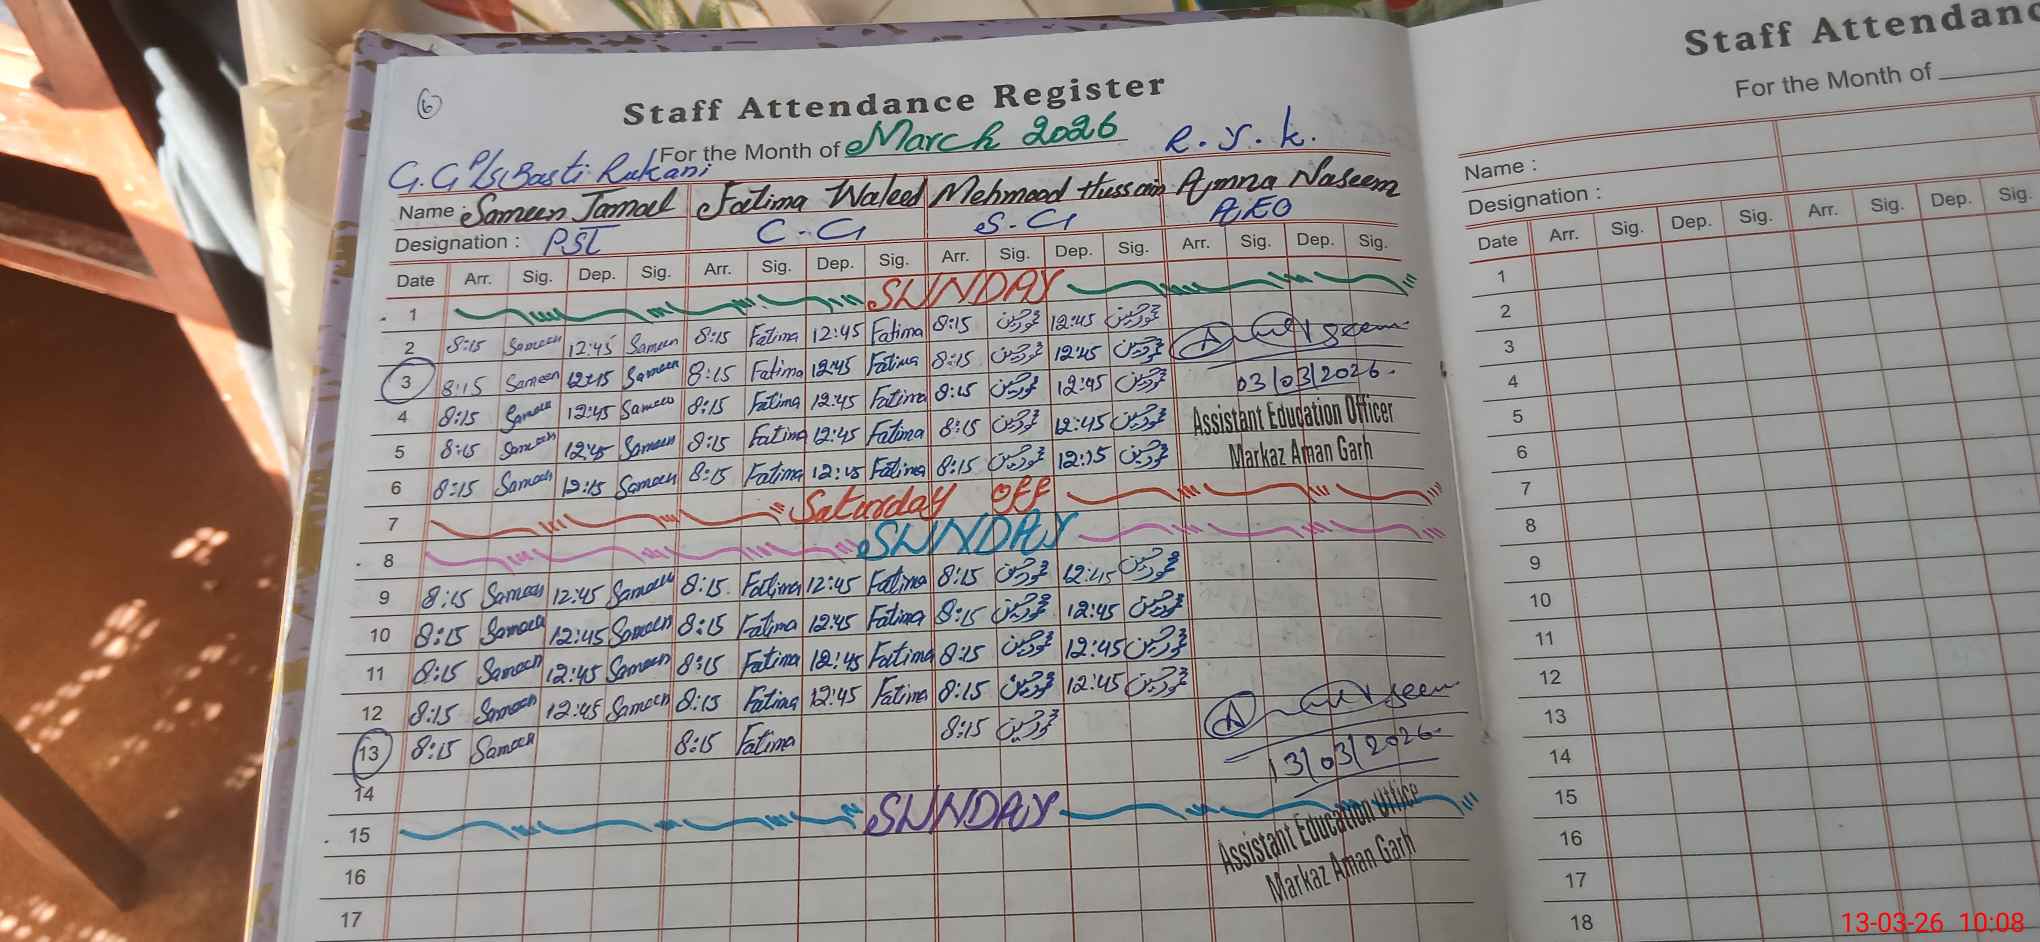 6
Staff Attendance Register
For the Month of March 2026 R.Y.K.
G.G P/S Basti Rukani
Name : Sameen Jamal Fatima Waleed Mehmood Hussain Aymna Naseem
Designation : PST C-C1 S-C1 AEO
Date Arr. Sig. Dep. Sig. Arr. Sig. Dep. Sig. Arr. Sig. Dep. Sig. Arr. Sig. Dep. Sig.
1 SUNDAY
2 8:15 Sameen 12:45 Sameen 8:15 Fatima 12:45 Fatima 8:15 12:45
3 8:15 Sameen 12:45 Sameen 8:15 Fatima 12:45 Fatima 8:15 12:45
03/03/2026.
4 8:15 Sameen 12:45 Sameen 8:15 Fatima 12:45 Fatima 8:15 12:45
Assistant Education Officer
5 8:15 Sameen 12:45 Sameen 8:15 Fatima 12:45 Fatima 8:15 12:45
Markaz Aman Garh
6 8:15 Sameen 12:15 Sameen 8:15 Fatima 12:15 Fatima 8:15 12:15
7 Saturday off
8 SUNDAY
9 8:15 Sameen 12:45 Sameen 8:15 Fatima 12:45 Fatima 8:15 12:45
10 8:15 Sameen 12:45 Sameen 8:15 Fatima 12:45 Fatima 8:15 12:45
11 8:15 Sameen 12:45 Sameen 8:15 Fatima 12:45 Fatima 8:15 12:45
12 8:15 Sameen 12:45 Sameen 8:15 Fatima 12:45 Fatima 8:15 12:45
13 8:15 Sameen 8:15 Fatima 8:15
13/03/2026.
14
15 SUNDAY
Assistant Education Office
16
Markaz Aman Garh
17
Staff Attendanc
For the Month of
Name :
Designation :
Date Arr. Sig. Dep. Sig. Arr. Sig. Dep. Sig.
1
2
3
4
5
6
7
8
9
10
11
12
13
14
15
16
17
18
13-03-26 10:08